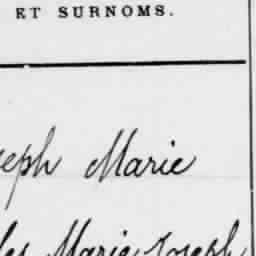 ET SURNOMS.
seph Marie
les Marie Joseph